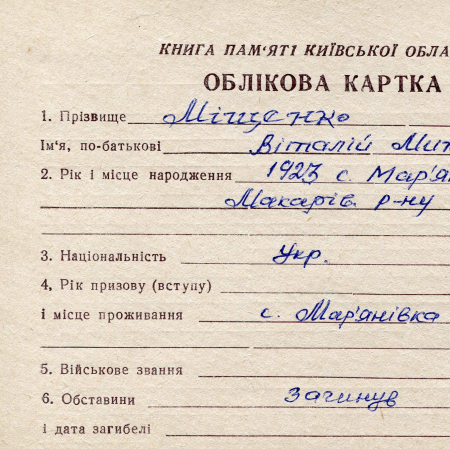 КНИГА ПАМ'ЯТІ КИЇВСЬКОЇ ОБЛА
ОБЛІКОВА КАРТКА
1. Прізвище Міщенко
Ім'я, по-батькові Віталій Мит
2. Рік і місце народження 1923 с. Мар'ян
Макарів. р-ну
3. Національність Укр.
4, Рік призову (вступу)
і місце проживання с. Мар'янівка
5. Військове звання
6. Обставини Загинув
і дата загибелі